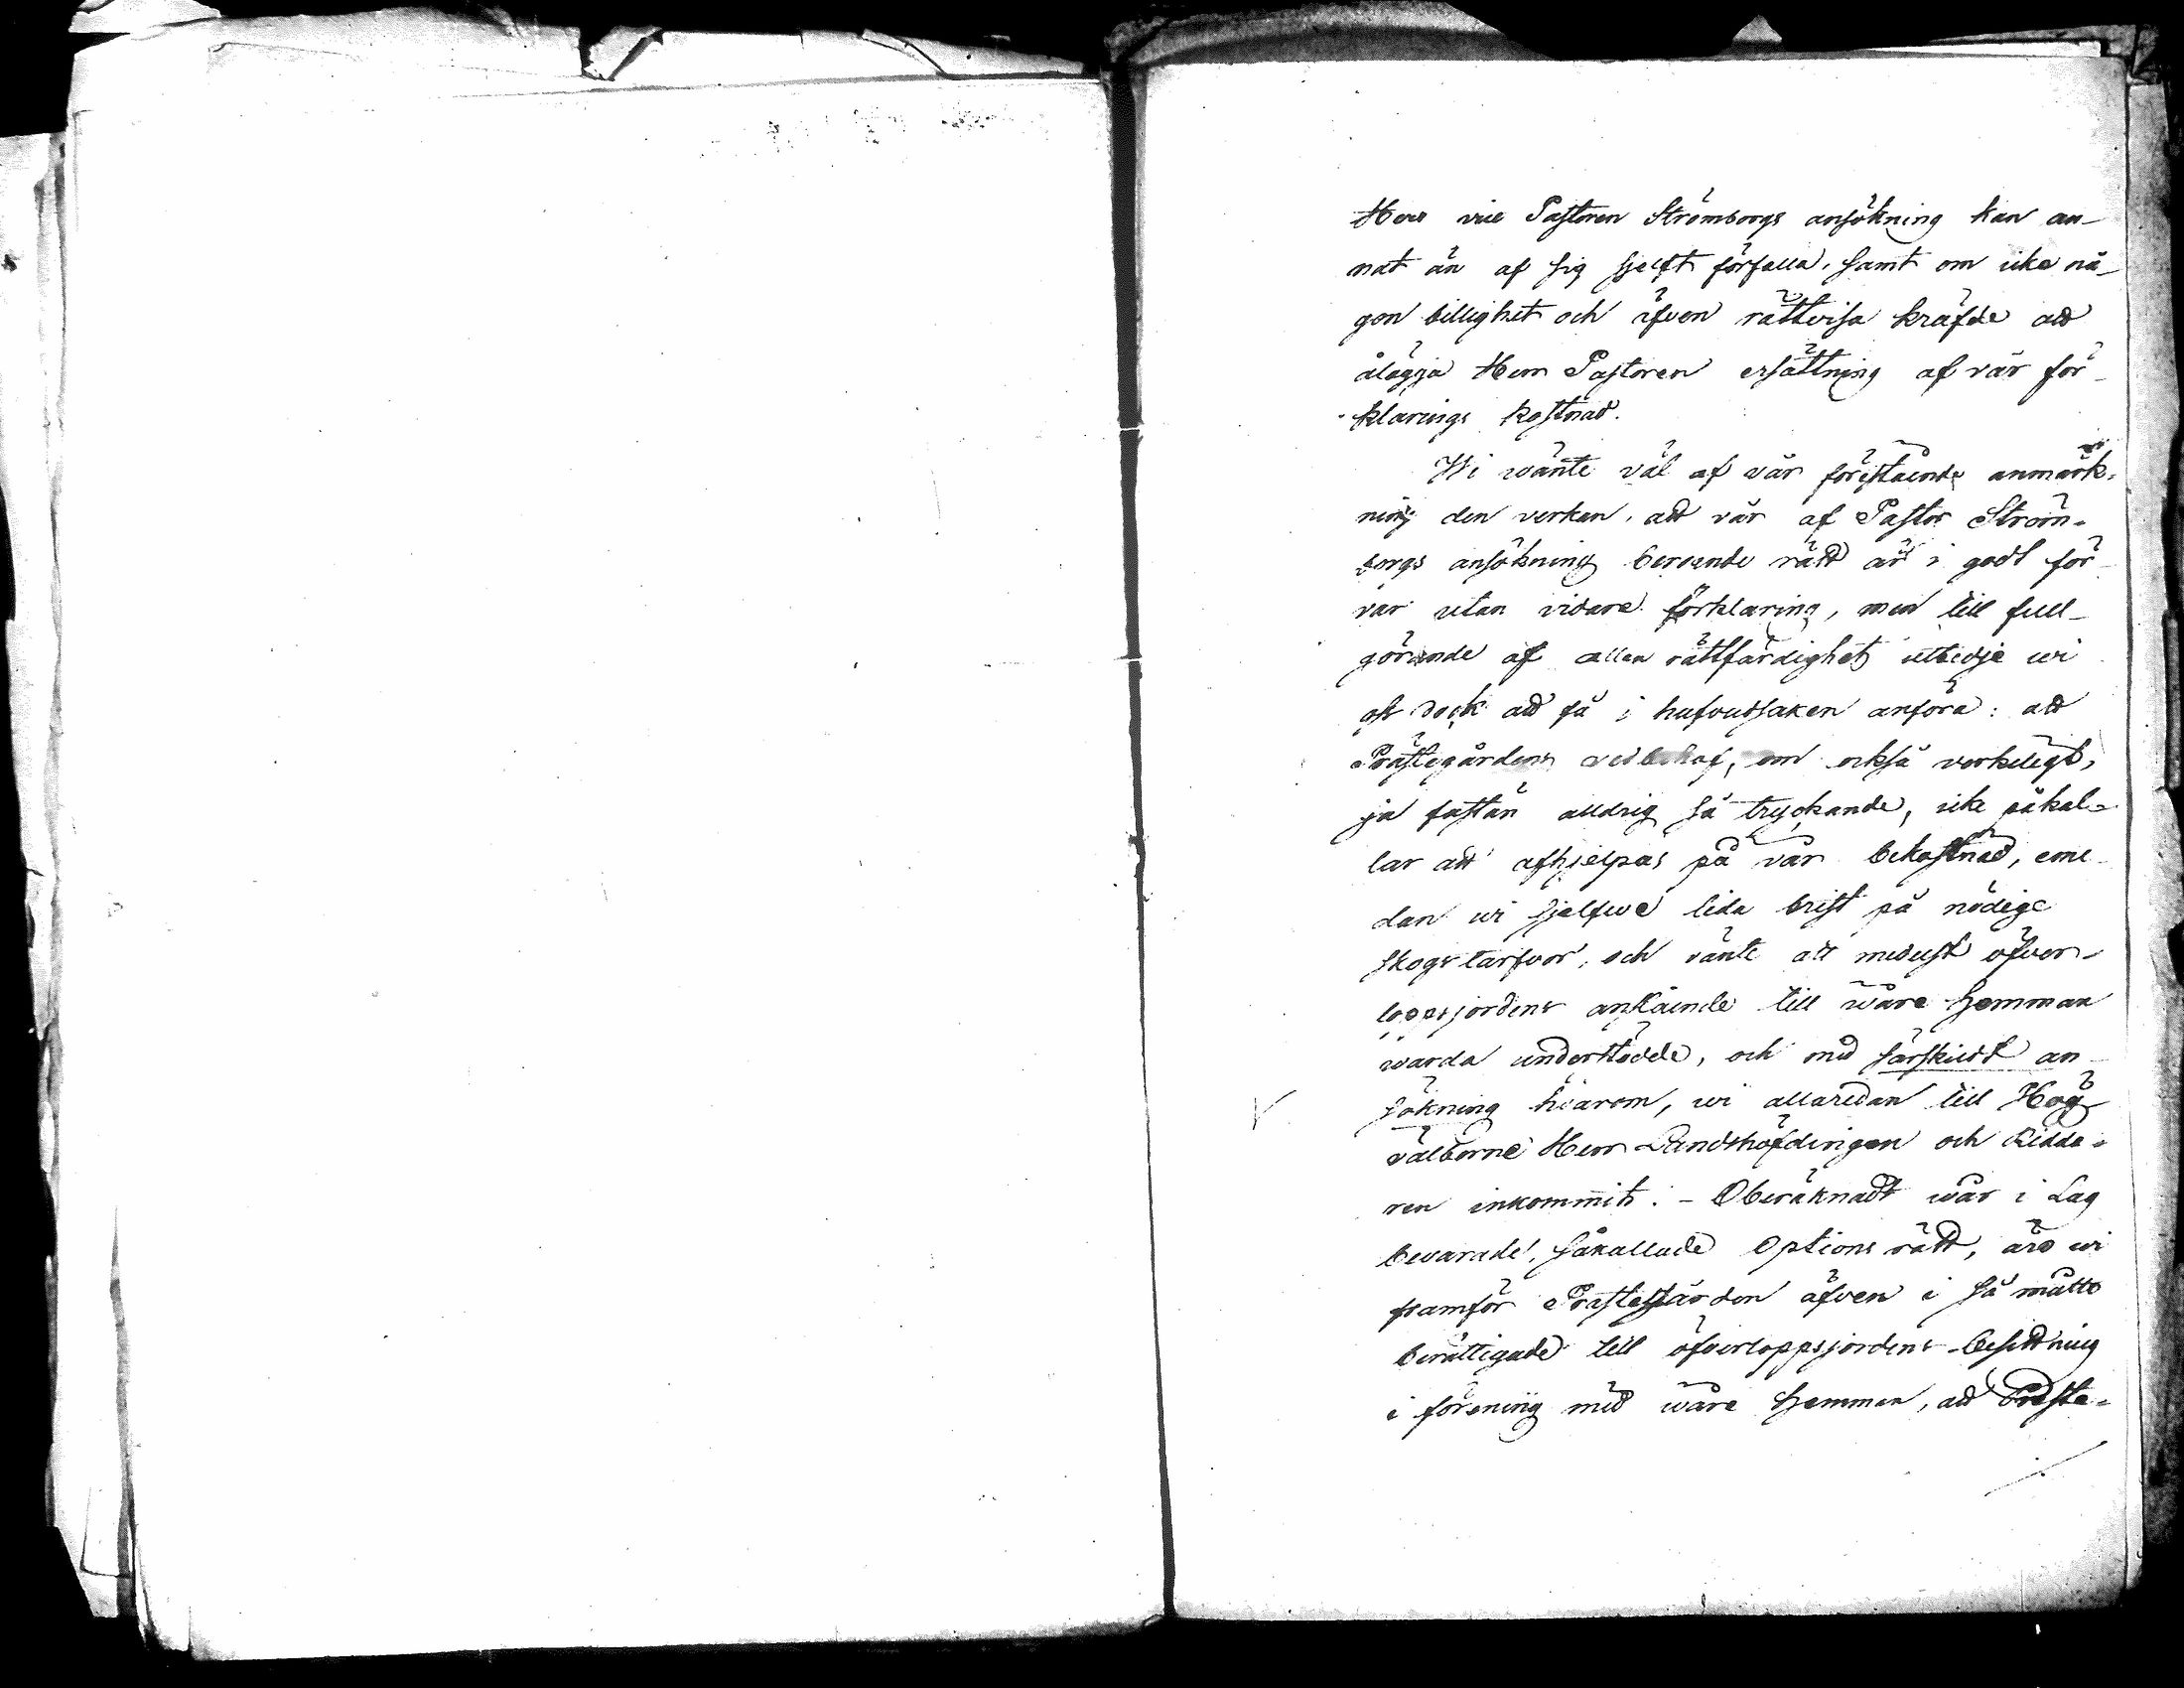 Herr vice Pastoren Strömborgs ansökning kan an-
nat än af sig sjelft förfalla, samt om icke nå-
gon billighet och äfven rättvisa kräfde att
ålägga Herr Pastoren ersättning af vår för-
klarings kostnad.
Wi wänte väl af vår förestående anmärk-
ning den verkan, att vår af Pastor Ström-
borgs ansökning beroende rätt är i godt för-
var utan vidare förklaring, men till full-
görande af allan rättfärdighet utbedje wi
oss dock att få i hufvudsaken anföra: att
Prästegårdens vedbehof, om också verkeligt,
ja fastän alldrig så tryckande, icke påkal-
lar att afhjelpas på vår bekostnad, eme-
dan wi sjelfwe lida brist på nödige
skogstarfvor, och vänte att medelst öfver-
loppsjordens anslående till wåre hemman
warda understödde, och med särskildt an-
sökning häarom, wi allaredan till Hög
välborne Herr Landshöfdingen och Ridda-
ren inkommit. - Oberäknadt wår i Lag
bevarade, såkallade Options rätt, äro wi
framför Prästegården äfven i så måtto
berättigade till öfverloppsjordens besittning
i förening med wåre hemman, att Präste-